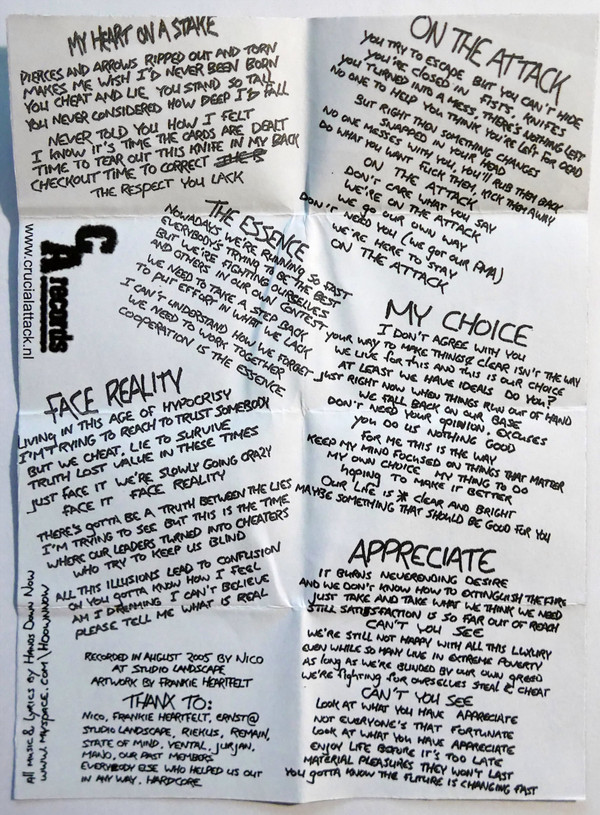 MY HEART ON A STAKE
PIERCES AND ARROWS RIPPED OUT AND TORN
MAKES ME WISH I'D NEVER BEEN BORN
YOU CHEAT AND LIE YOU STAND SO TALL
YOU NEVER CONSIDERED HOW DEEP I'D FALL
NEVER TOLD YOU HOW I FELT
I KNOW IT'S TIME THE CARDS ARE DEALT
TIME TO TEAR OUT THIS KNIFE IN MY BACK
CHECKOUT TIME TO CORRECT
THE RESPECT YOU LACK
ON THE ATTACK
YOU TRY TO ESCAPE BUT YOU CAN'T HIDE
YOU'RE CLOSED IN FISTS, KNIFES
YOU TURNED INTO A MESS, THERE'S NOTHING LEFT
NO ONE TO HELP YOU THINK YOU'RE LEFT FOR DEAD
BUT RIGHT THEN SOMETHING CHANGES
SNAPPED IN YOUR HEAD
NO ONE MESSES WITH YOU, YOU'LL RUB THEM BACK
DO WHAT YOU WANT FUCK THEM, KICK THEM AWAY
ON THE ATTACK
DON'T CARE WHAT YOU SAY
WE'RE ON THE ATTACK
WE GO OUR OWN WAY
DON'T NEED YOU (WE GOT OUR PMA)
WE'RE HERE TO STAY
ON THE ATTACK
CA records
www.crucialattack.nl
THE ESSENCE
NOWADAYS WE'RE RUNNING SO FAST
EVERYBODY'S TRYING TO BE THE BEST
BUT WE'RE FIGHTING OURSELVES
AND OTHERS IN OUR OWN CONTEST
WE NEED TO TAKE A STEP BACK
TO PUT EFFORT IN WHAT WE LACK
I CAN'T UNDERSTAND HOW WE FORGET
WE NEED TO WORK TOGETHER
COOPERATION IS THE ESSENCE
MY CHOICE
I DON'T AGREE WITH YOU
YOUR WAY TO MAKE THINGS CLEAR ISN'T THE WAY
WE LIVE FOR THIS AND THIS IS OUR CHOICE
AT LEAST WE HAVE IDEALS DO YOU?
JUST RIGHT NOW WHEN THINGS RUN OUT OF HAND
WE FALL BACK ON OUR BASE
DON'T NEED YOUR OPINION. EXCUSES
YOU DO US NOTHING GOOD
FOR ME THIS IS THE WAY
KEEP MY MIND FOCUSED ON THINGS THAT MATTER
MY OWN CHOICE MY THING TO DO
HOPING TO MAKE IT BETTER
OUR LIFE IS CLEAR AND BRIGHT
MAYBE SOMETHING THAT SHOULD BE GOOD FOR YOU
FACE REALITY
LIVING IN THIS AGE OF HYPOCRISY
I'M TRYING TO REACH TO TRUST SOMEBODY
BUT WE CHEAT, LIE TO SURVIVE
TRUTH LOST VALUE IN THESE TIMES
JUST FACE IT WE'RE SLOWLY GOING CRAZY
FACE IT FACE REALITY
THERE'S GOTTA BE A TRUTH BETWEEN THE LIES
I'M TRYING TO SEE BUT THIS IS THE TIME
WHERE OUR LEADERS TURNED INTO CHEATERS
WHO TRY TO KEEP US BLIND
ALL THIS ILLUSIONS LEAD TO CONFUSION
OH YOU GOTTA KNOW HOW I FEEL
AM I DREAMING I CAN'T BELIEVE
PLEASE TELL ME WHAT IS REAL
APPRECIATE
IT BURNS NEVERENDING DESIRE
AND WE DON'T KNOW HOW TO EXTINGUISH THE FIRE
JUST TAKE AND TAKE WHAT WE THINK WE NEED
STILL SATISFACTION IS SO FAR OUT OF REACH
CAN'T YOU SEE
WE'RE STILL NOT HAPPY WITH ALL THIS LUXURY
EVEN WHILE SO MANY LIVE IN EXTREME POVERTY
AS LONG AS WE'RE BLINDED BY OUR OWN GREED
WE'RE FIGHTING FOR OURSELVES STEAL & CHEAT
CAN'T YOU SEE
LOOK AT WHAT YOU HAVE APPRECIATE
NOT EVERYONE'S THAT FORTUNATE
LOOK AT WHAT YOU HAVE APPRECIATE
ENJOY LIFE BEFORE IT'S TOO LATE
MATERIAL PLEASURES THEY WON'T LAST
YOU GOTTA KNOW THE FUTURE IS CHANGING FAST
All MUSIC & LYRICS BY HANDS DOWN NOW
WWW.MYSPACE.COM/HDOWNNOW
RECORDED IN AUGUST 2005 BY NICO
AT STUDIO LANDSCAPE
ARTWORK BY FRANKIE HEARTFELT
THANX TO:
NICO, FRANKIE HEARTFELT, ERNST@
STUDIO LANDSCAPE, RIEKUS, REMAIN,
STATE OF MIND, VENTAL, JURJAN,
MANO, OUR PAST MEMBERS
EVERYBODY ELSE WHO HELPED US OUT
IN ANY WAY. HARDCORE